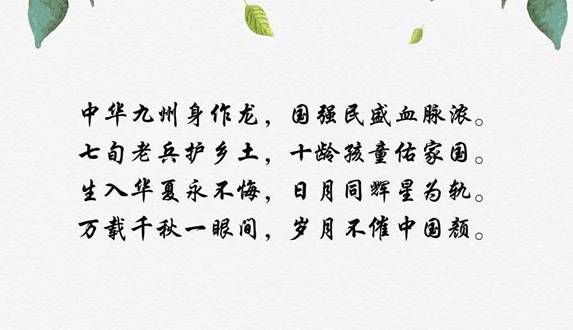 中华九州身作龙，国强民盛血脉浓。
七旬老兵护乡土，十龄孩童佑家国。
生入华夏永不悔，日月同辉星为轨。
万载千秋一眼间，岁月不催中国颜。